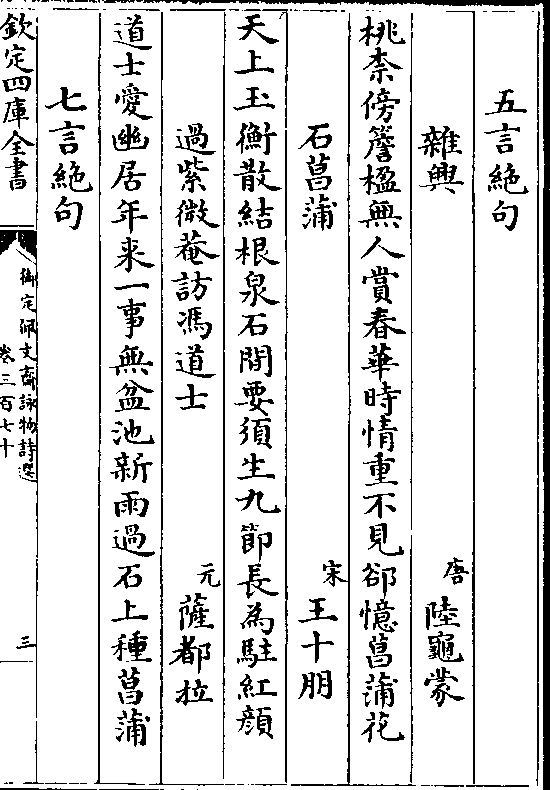 五言絶句
雜興　唐　陸龜蒙
桃柰傍簷楹無人賞春華時情重不見郤憶菖蒲花
石菖蒲　宋　王十朋
天上玉衡散結根泉石間要須生九節長為駐紅顔
過紫微菴訪馮道士　元　薩都拉
道士愛幽居年来一事無盆池新雨過石上種菖蒲
七言絶句
欽定四庫全書
御定佩文齋詠物詩選
卷三百七十
三